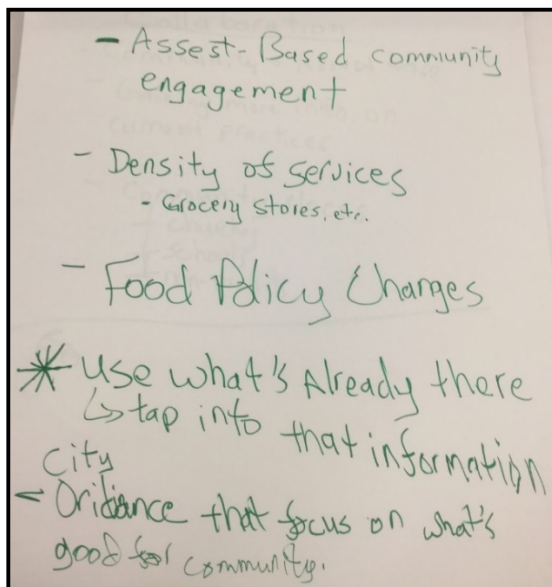 - Assest-Based community
engagement
- Density of services
- Grocery stores, etc.
- Food Policy Changes
* Use what's Already there
↳ tap into that information
City
- Oridance that focus on what's
good for community.